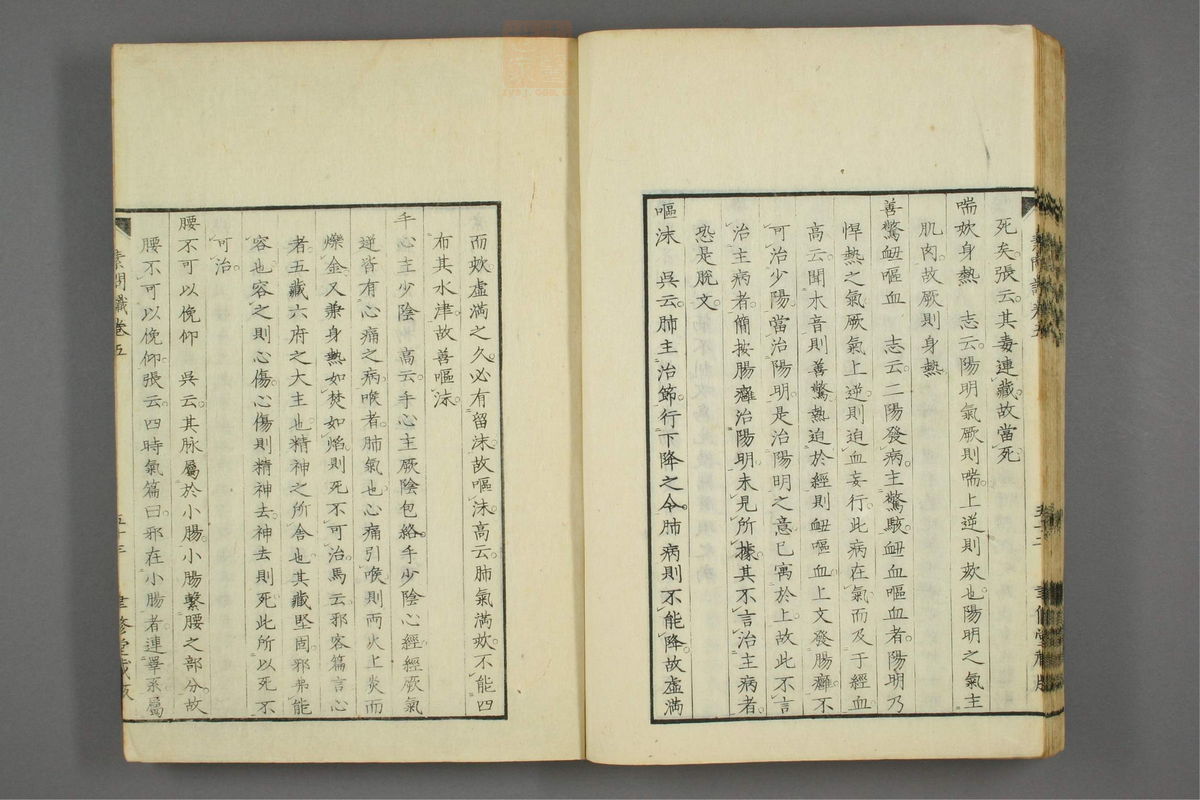 死矣。張云。其毒連藏。故當死
喘欬身熱 志云。陽明氣厥則喘。上逆則欬也。陽明之氣主
肌肉。故厥則身熱
善驚衄嘔血 志云。二陽發病。主驚駭衄血嘔血者。陽明乃
悍熱之氣。厥氣上逆。則迫血妄行。此病在氣。而及于經血
高云。聞木音則善驚。熱迫於經。則衄嘔血。上文發腸癰不
可治。少陽當治陽明。是治陽明之意。已寓於上。故此不言
治主病者。簡按腸癰治陽明。未見所據。其不言治主病者。
恐是脫文。
嘔沫 吳云。肺主治節。行下降之令。肺病則不能降。故虛滿
而欬。虛滿之久。必有留沫。故嘔沫。高云。肺氣滿欬。不能四
布其水津。故善嘔沫。
手心主少陰 高云。手心主厥陰包絡。手少陰心經。經厥氣
逆。皆有心痛之病。喉者肺氣也。心痛引喉。則兩火上炎而
爍金。又兼身熱如焚如焰。則死不可治。馬云。邪客篇言心
者。五藏六府之大主也。精神之所舍也。其藏堅固。邪弗能
容也。容之則心傷。心傷則精神去。神去則死。此所以死不
可治。
腰不可以俛仰 吳云。其脉屬於小腸。小腸繫腰之部分。故
腰不可以俛仰。張云。四時氣篇曰。邪在小腸者。連睪系屬
素問識卷五
五十三
聿修堂藏版